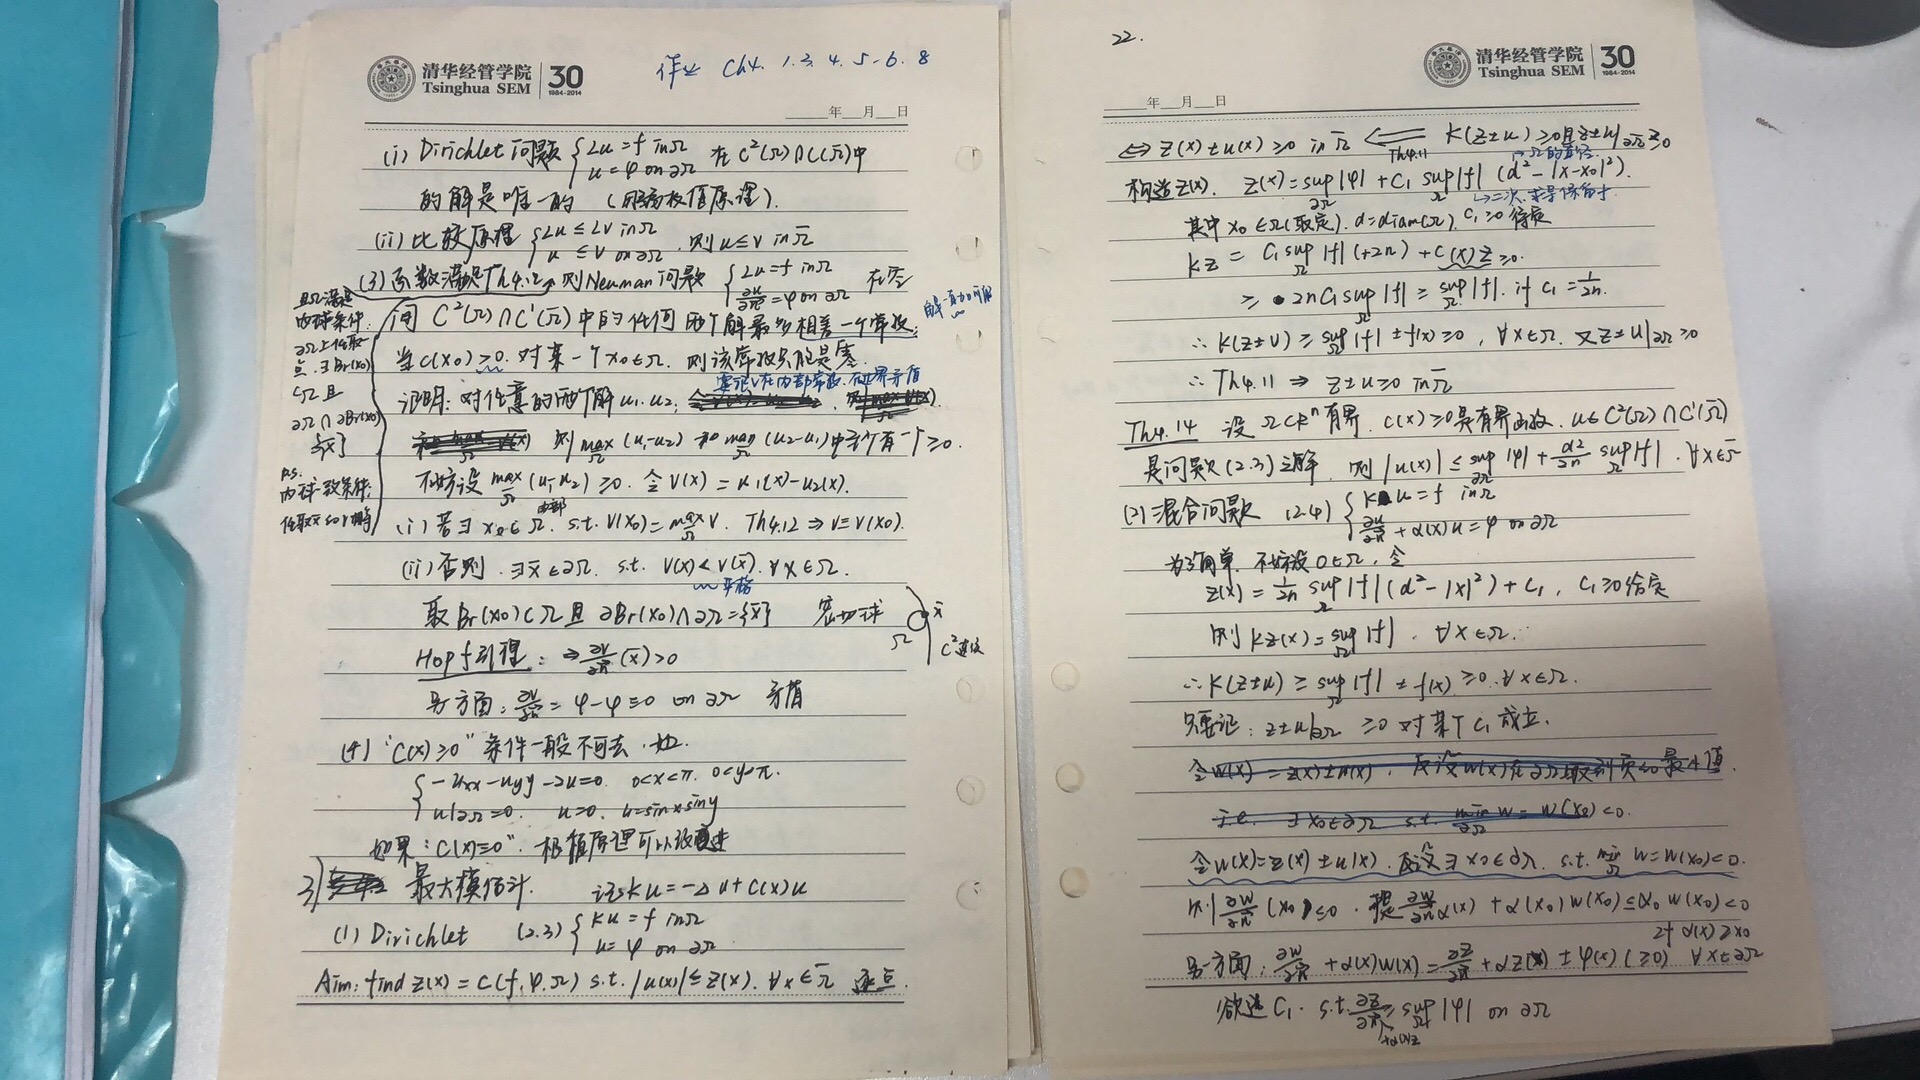 清华经管学院
Tsinghua SEM
30
1984-2014
作业 Ch4. 1.3.4.5-6.8
年 月 日
(i) Dirichlet问题 { Lu=f in Ω
u=φ on ∂Ω 在 C²(Ω)∩C(Ω̄)中
的解是唯一的
(ii) 比较原理 { Lu≤Lv in Ω
u≤v on ∂Ω. 则u≤v in Ω̄
(3) 函数满足Th4.12, 则Neuman问题 { Lu=f in Ω
∂u/∂n⃗=φ on ∂Ω 在空
间 C²(Ω)∩C¹(Ω̄)中的任何两个解最多相差一个常数;
当C(x₀)≥0. 对某一个x₀∈Ω. 则该常数只能是零.
且Ω满足
内球条件.
∂Ω上任取
点. ∃Br(x₀)
⊂Ω 且
∂Ω∩∂Br(x₀)
P.S.
证明: 对任意的两个解u₁.u₂,
则 max (u₁-u₂) 和 max (u₂-u₁)中至少有一个≥0.
不妨设 max (u₁-u₂)≥0. 令V(x)=u₁(x)-u₂(x).
内部
(i) 若∃ x₀∈Ω. s.t. V(x₀)=max V. Th4.12 ⇒ V≡V(x₀).
(ii) 否则. ∃x̄∈∂Ω. s.t. V(x)<V(x̄). ∀x∈Ω.
严格
取Br(x₀)⊂Ω 且 ∂Br(x₀)∩∂Ω={x̄}
x̄
Ω
Hopf引理: ⇒ ∂V/∂n⃗(x̄)>0
另方面: ∂V/∂n⃗=φ-φ≡0 on ∂Ω 矛盾
(4) "C(x)≥0" 条件一般不可去. 如.
{ -uxx-uyy-2u=0. 0<x<π. 0<y<π.
u|∂Ω=0. u=0. u=sinxsiny
如果: "C(x)≡0". 极值原理可以改进
3) 最大模估计. 记 Ku=-Δu+C(x)u
(1) Dirichlet (2.3) { Ku=f in Ω
u=φ on ∂Ω
Aim: find z(x)=C(f,φ,Ω) s.t. |u(x)|≤z(x). ∀x∈Ω̄ 逐点.
22.
清华经管学院
Tsinghua SEM
30
1984-2014
年 月 日
⇔ z(x)±u(x)≥0 in Ω̄ ⇐ K(z±u)≥0且z±u|∂Ω≥0
Th4.11
Ω的直径
构造z(x). z(x)=sup|φ|+C₁ sup|f| (d²-|x-x₀|²).
∂Ω Ω
其中x₀∈Ω(取定). d=diam(Ω). C₁≥0待定
Kz = C₁sup|f|(+2n)+C(x)z≥0.
≥ 2nC₁sup|f|≥sup|f|. if C₁=1/2n.
∴ K(z±u)≥sup|f|±f(x)≥0, ∀x∈Ω. 又z±u|∂Ω≥0
∴ Th4.11 ⇒ z±u≥0 in Ω̄
Th4.14 设Ω⊂Rⁿ有界. C(x)≥0是有界函数. u∈C²(Ω)∩C¹(Ω̄)
是问题(2.3)之解. 则|u(x)|≤sup|φ|+d²/2n sup|f|. ∀x∈Ω̄
(2) 混合问题 (2.4) { Ku=f in Ω
∂u/∂n⃗+α(x)u=φ on ∂Ω
为了简单. 不妨设0∈Ω, 令
z(x)=1/2n sup|f|(d²-|x|²)+C₁, C₁≥0待定
则Kz(x)≥sup|f|. ∀x∈Ω.
∴K(z±u)≥sup|f|±f(x)≥0. ∀x∈Ω.
只要证: z±u|∂Ω≥0对某个C₁成立.
令w(x)=z(x)±u(x), 反设w(x)在∂Ω上取到负的最小值.
i.e. ∃x₀∈∂Ω s.t. min w=w(x₀)<0.
∂Ω
令w(x)=z(x)±u(x). 反设∃x₀∈∂Ω. s.t. min w=w(x₀)<0.
则∂w/∂n⃗(x₀)≤0. +α(x₀)w(x₀)≤α₀w(x₀)<0
另一方面: ∂w/∂n⃗+α(x)w(x)=∂z/∂n⃗+αz(x)±φ(x)(≥0) ∀x∈∂Ω
欲选C₁. s.t. ∂z/∂n⃗≥sup|φ| on ∂Ω
+α(x)z